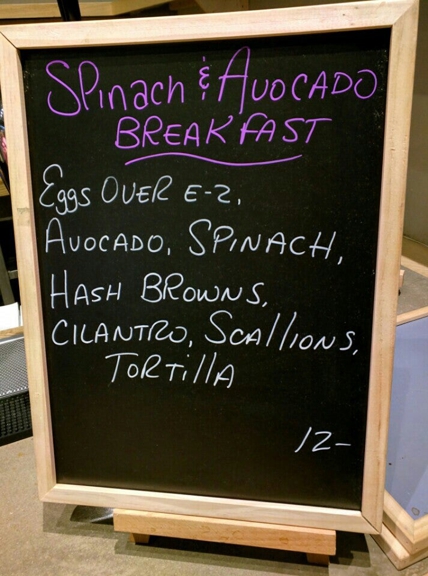 SPinach & AVOCADO
BREAKFAST
Eggs OVER E-Z,
AVOCADO, SPINACH,
HASH BROWNS,
CILANTRO, Scallions,
TORTillA
12-